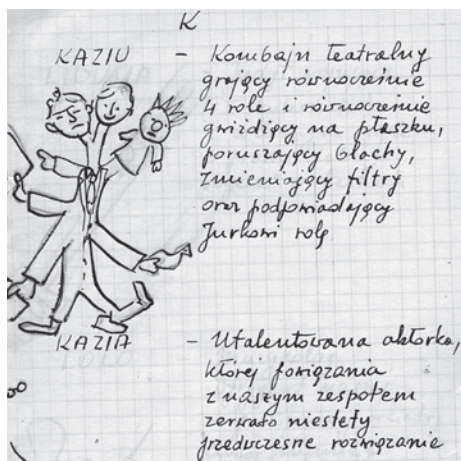 K
KAZIU - Kombajn teatralny
grający równocześnie
4 role i równocześnie
gwiżdżący na ptaszku,
poruszający blachy,
zmieniający filtry
oraz podpowiadający
Jurkowi rolę
KAZIA - Utalentowana aktorka,
której powiązania
z naszym zespołem
zerwało niestety
przedwczesne rozwiązanie